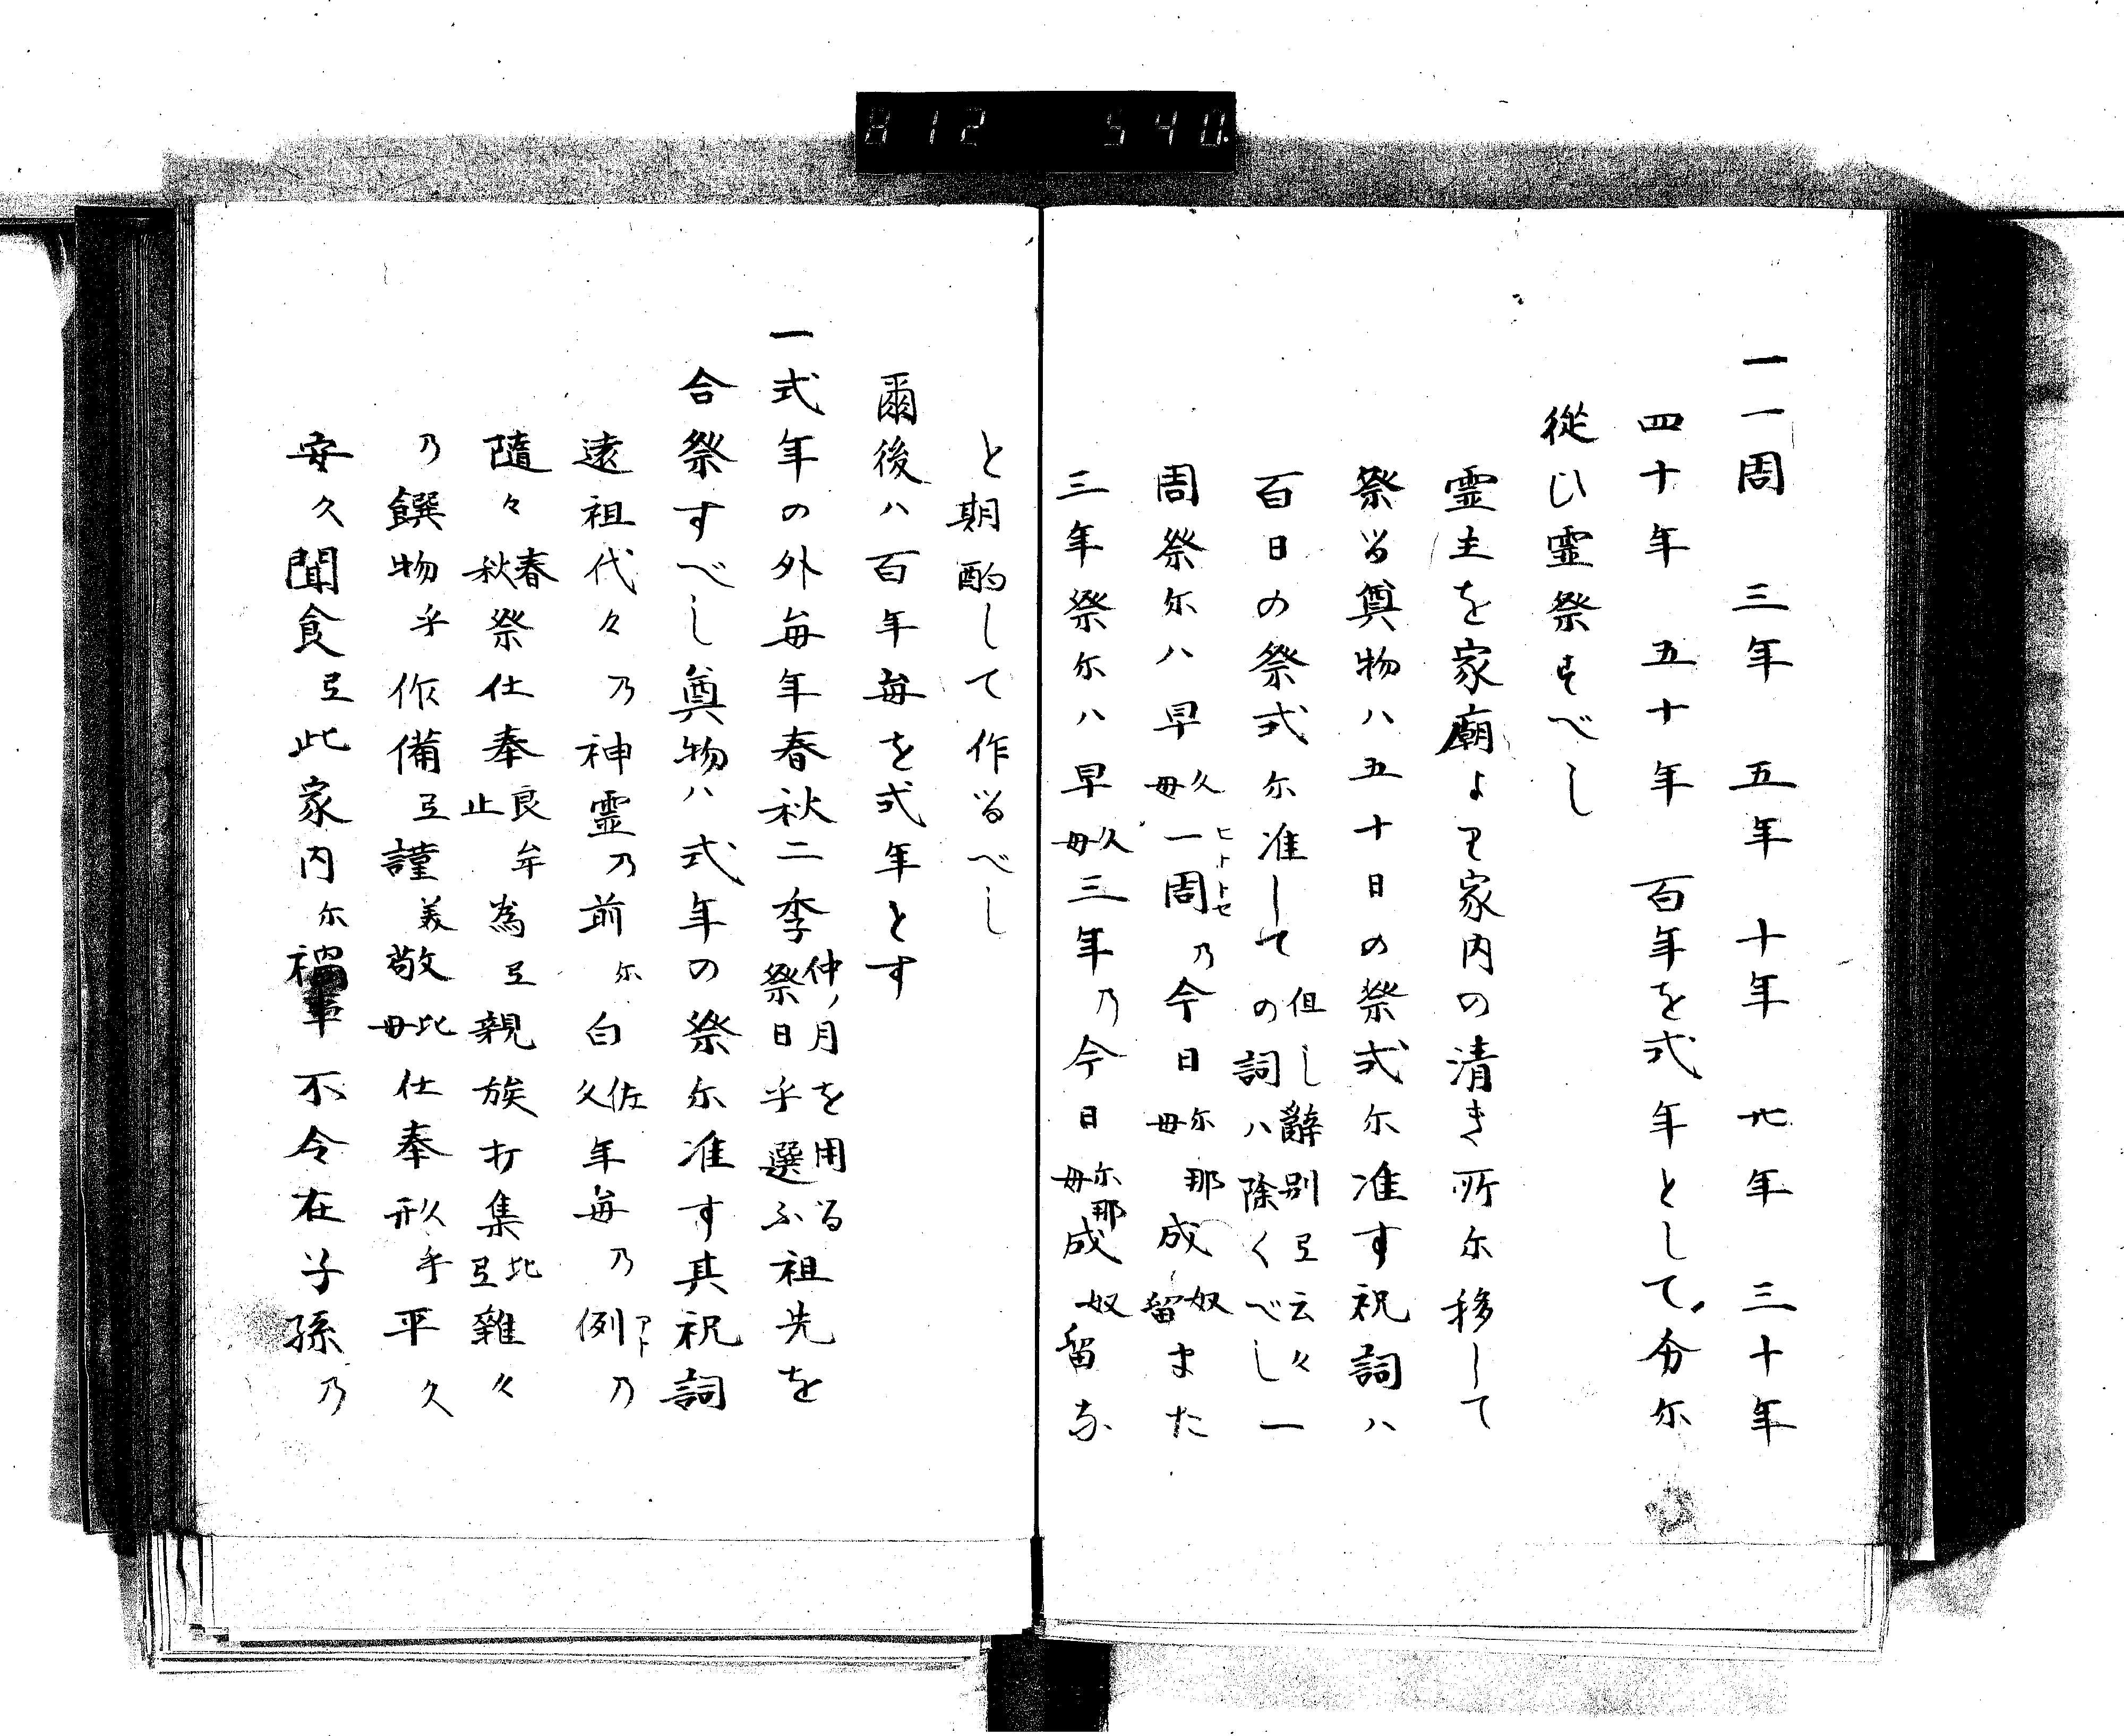 812 540.
一一周 三年 五年 十年 廿年 三十年
四十年 五十年 百年を式年として分尓
従ひ霊祭すべし
霊主を家廟より家内の清き所尓移して
祭る奠物ハ五十日の祭式尓准す祝詞ハ
百日の祭式尓准して但し辭別弖云々の詞ハ除くべし一
周祭尓ハ早久毋一周ヒトトセ乃今日尓毋那成奴留また
三年祭尓ハ早久毋三年乃今日尓毋那成奴留な
と期酌して作るべし
爾後ハ百年毎を式年とす
一式年の外毎年春秋二季仲ノ月を用る祭日乎選ふ祖先を
合祭すべし奠物ハ式年の祭尓准す其祝詞
遠祖代々乃神霊乃前尓白佐久年毎乃例アト乃
隨々春秋祭仕奉良牟止為弖親族打集比弖雜々
乃饌物乎作備弖謹美敬比毋仕奉形久乎平久
安久聞食弖此家内尓禍事不令在子孫乃